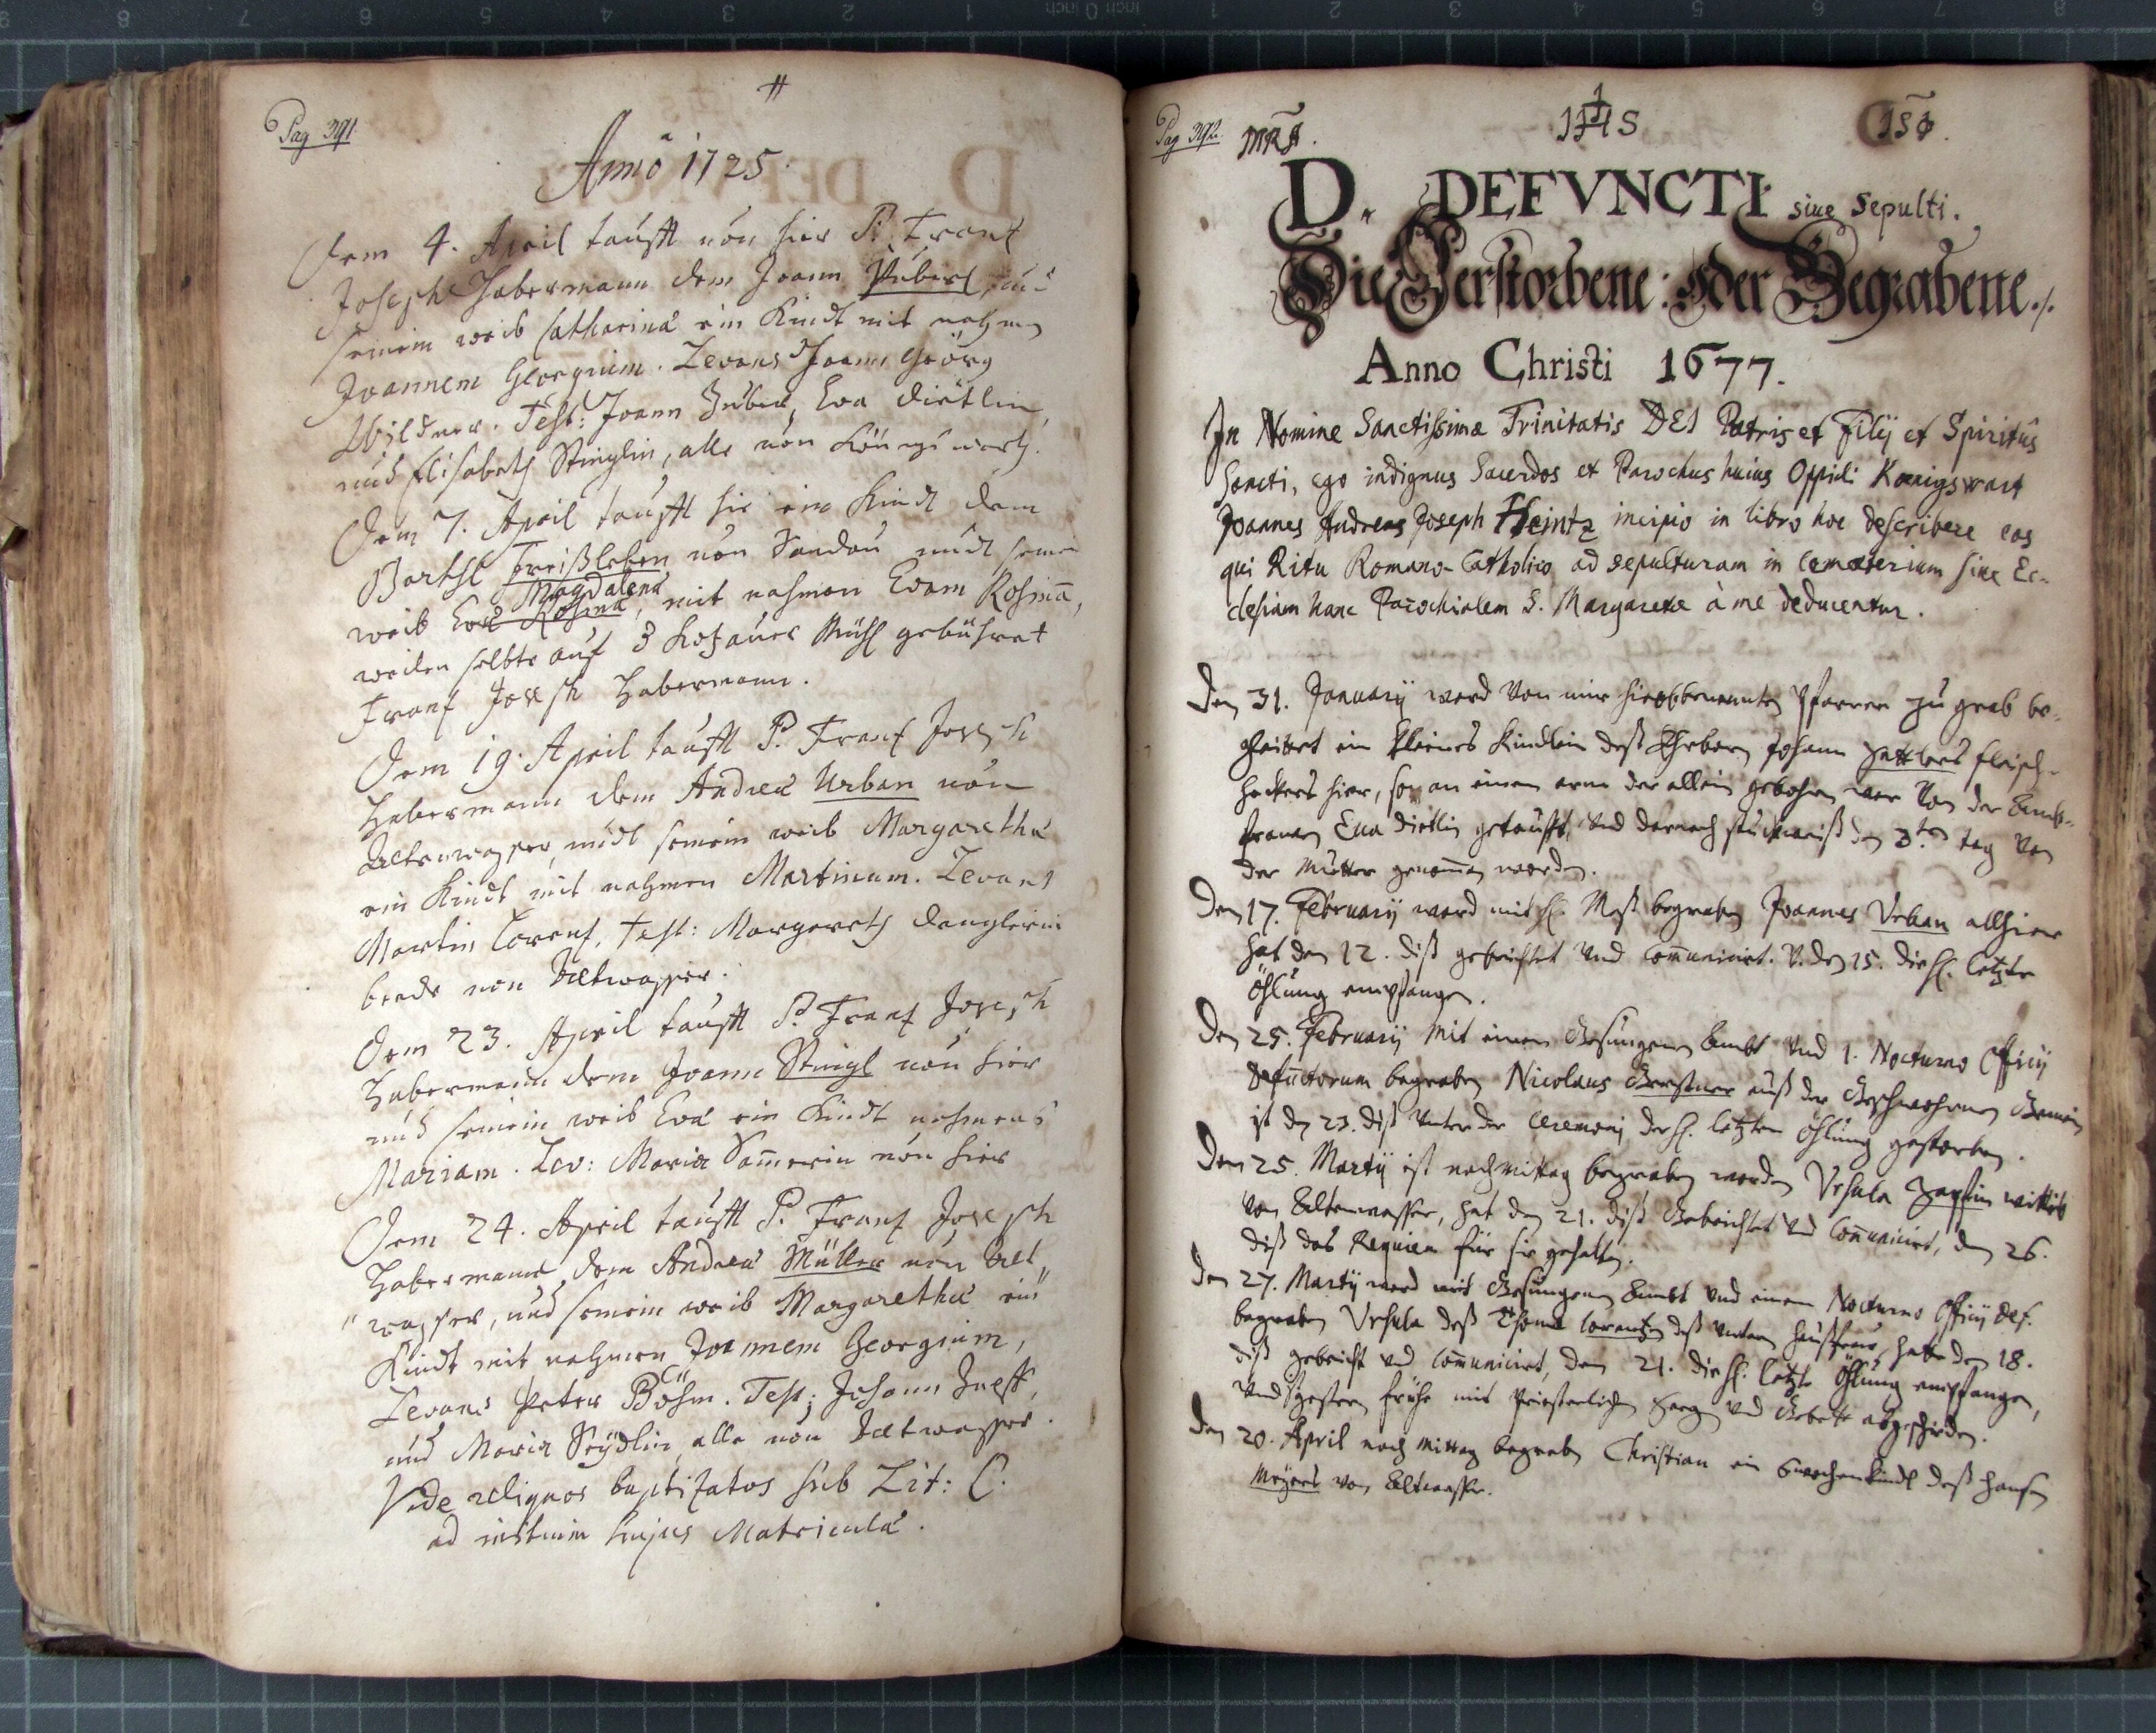 Pag 391
Anno 1725.
Dem 4. April taufft von hier P. Frantz
Joseph Habermann dem Joann Huberl, und
seinem weib Catharina ein Kindt mit nahmen
Joannem Georgium. Levans Joann Görg
Wildner. Test: Joann Huber, Eva dietlin,
und Elisabeth Stinglin, alle von Königswarth.
Dem 7. April taufft hie ein Kindt dem
Barthl Freißleben von Sandau undt seinem
Magdalena
weib Eva Rosina, mit nahmen Evam Rosinã,
weilen selbte auf d Mühl gebühret
Frantz Joseph Habermann.
Dem 19. April taufft P. Frantz Joseph
Habermann dem Andrea Urban von
Altenwasser, undt seinem weib Margaretha
ein Kindt mit nahmen Martinum. Levans
Martin Lorentz, Test: Margareth Denglerin
beede von Altwasser.
Dem 23. April taufft P. Frantz Joseph
Habermann dem Joann Stingl von hier
und seinem weib Eva ein Kindt nahmens
Mariam. Lev: Maria Som̃erin von hier
Dem 24. April taufft P. Frantz Joseph
Habermann, dem Andrea Müller von Alt
wasser, und seinem weib Margaretha ein
Kindt mit nahmen Joannem Georgium,
Levans Peter Böhm. Test: Johann
und Maria Seÿdlin, alle von Altwasser.
Vide reliquos baptizatos sub Lit: C.
ad initium hujus Matricula.
Pag 392.
MRA.
IHS
D. DEFVNCTI siue sepulti.
Die Verstorbene: oder Begrabene./.
Anno Christi 1677.
In Nomine Sanctissimæ Trinitatis DEI Patris et Filij et Spiritûs
Sancti, ego indignus Sacerdos et Parochus huius Oppidi Kœnigswart
Joannes Andreas Joseph Heintz incipio in libro hoc describere eos
qui Ritu Romano-Catholico ad sepulturam in Cœmeterium sive Ec-
clesiam hanc Parochialem S. Margaretæ à me deducentur.
Den 31. Januarij ward Von mir hieobbenannten Pfarrer zu grab be-
gleitet ein kleines Kindlein deß Ehrbarn Johann Hattlers fleisch-
hackers hier, so an einem arm der allein gebohren war Von der Amb-
frawen Eva dietlin getaufft, Vnd darnach stuckweiß den 3ten tag Von
der Mutter genom̃en worden.
Den 17. Februarij ward mit hl. Meß begraben Joannes Urban allhier
hat den 12. diß gebeichtet Vnd com̃unicirt. V. den 15. die hl. letzte
Öhlung empfangen.
Den 25. Februarij Mit einem Gesungenen Ambt Vnd 1. Nocturno Officij
defũctorum begraben Nicolaus Gerstner auß der Geschwohrnen Gemein
ist den 23. diß Vnter der Ceremonj der hl. letzten Öhlung gestorben.
Den 25. Martij ist nachmittag begraben worden Ursula Zapfin wittib
Von Altenwasser, hat den 21. diß Gebeichtet Vnd Com̃unicirt, den 26.
diß das Requiem für sie gehalten.
Den 27. Martij ward mit Gesungenen Ambt Vnd einem Nocturno Officij def.
begraben Ursula deß Thoma Lorentzen deß Vntern haußfraw, hatte den 18.
diß gebeicht Vnd Com̃unicirt, den 21. die hl. letzte Öhlung empfangen,
Vnd gestern frühe mit Priesterlichem Gebett abgeschieden.
Den 20. April nach Mittag begraben Christian ein 6wochenkindl deß Hansen
Meyers von Altwasser.